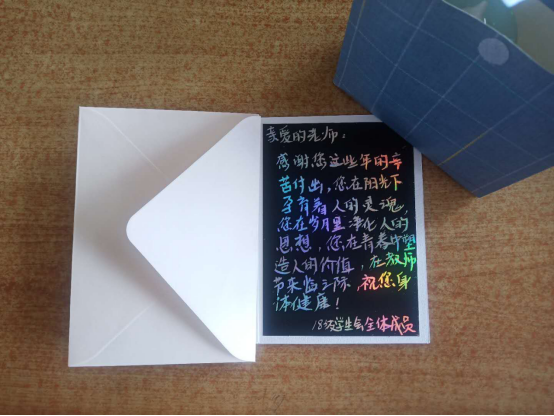 亲爱的老师：
感谢您这些年的辛
苦付出，您在阳光下
孕育着人的灵魂，
您在岁月里净化人的
思想，您在青春中塑
造人的价值，在教师
节来临之际，祝您身
体健康！
学生会全体成员